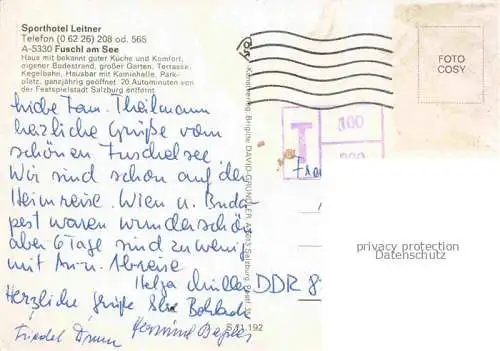 Sporthotel Leitner
Telefon (0 62 26) 208 od. 565
A-5330 Fuschl am See
Haus mit bekannt guter Küche und Komfort,
eigener Badestrand, großer Garten, Terrasse,
Kegelbahn, Hausbar mit Kaminhalle, Park-
platz, ganzjährig geöffnet. 20 Autominuten von
der Festspielstadt Salzburg entfernt
Liebe Fam. Theilmann
herzliche Grüße vom
schönen Fuschelsee.
Wir sind schon auf der
Heimreise. Wien u. Buda-
pest waren wunderschön
aber 6 Tage sind zu wenig
mit An- u. Abreise
Helga Müller
Herzliche Grüße
Kunstverlag Brigitte DAVID-GRÜNDLER, A-5033 Salzburg
S 11.192
FOTO
COSY
T
300
DDR 8
privacy protection
Datenschutz